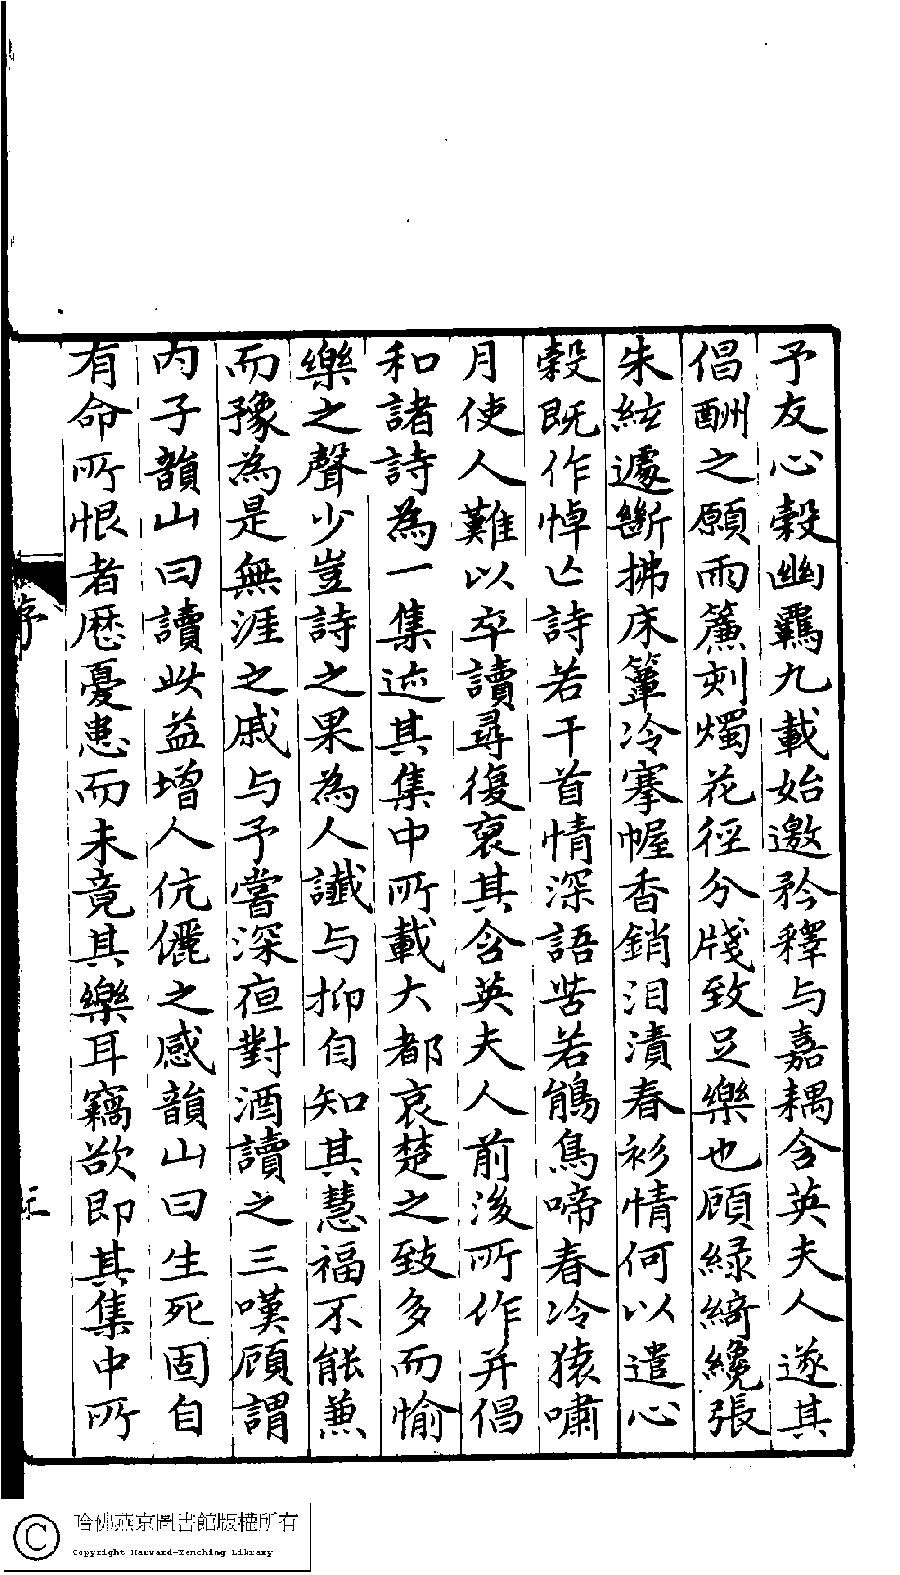 予友心穀幽羈九載始邀矜釋与嘉耦含英夫人遂其
倡酬之願雨簾刻燭花徑分牋致足樂也顧緑綺纔張
朱絃遽斷拂床簟冷搴幄香銷泪漬春衫情何以遣心
穀既作悼亡詩若干首情深語苦若鵑鳥啼春冷猿嘯
月使人難以卒讀尋復裒其含英夫人前後所作并倡
和諸詩為一集迹其集中所載大都哀楚之致多而愉
樂之聲少豈詩之果為人讖与抑自知其慧福不能兼
而豫為是無涯之戚与予嘗深夜對酒讀之三嘆顧謂
内子韻山曰讀此益增人伉儷之感韻山曰生死固自
有命所恨者歷憂患而未竟其樂耳竊欲即其集中所
序
哈佛燕京圖書館版權所有
Copyright Harvard-Yenching Library